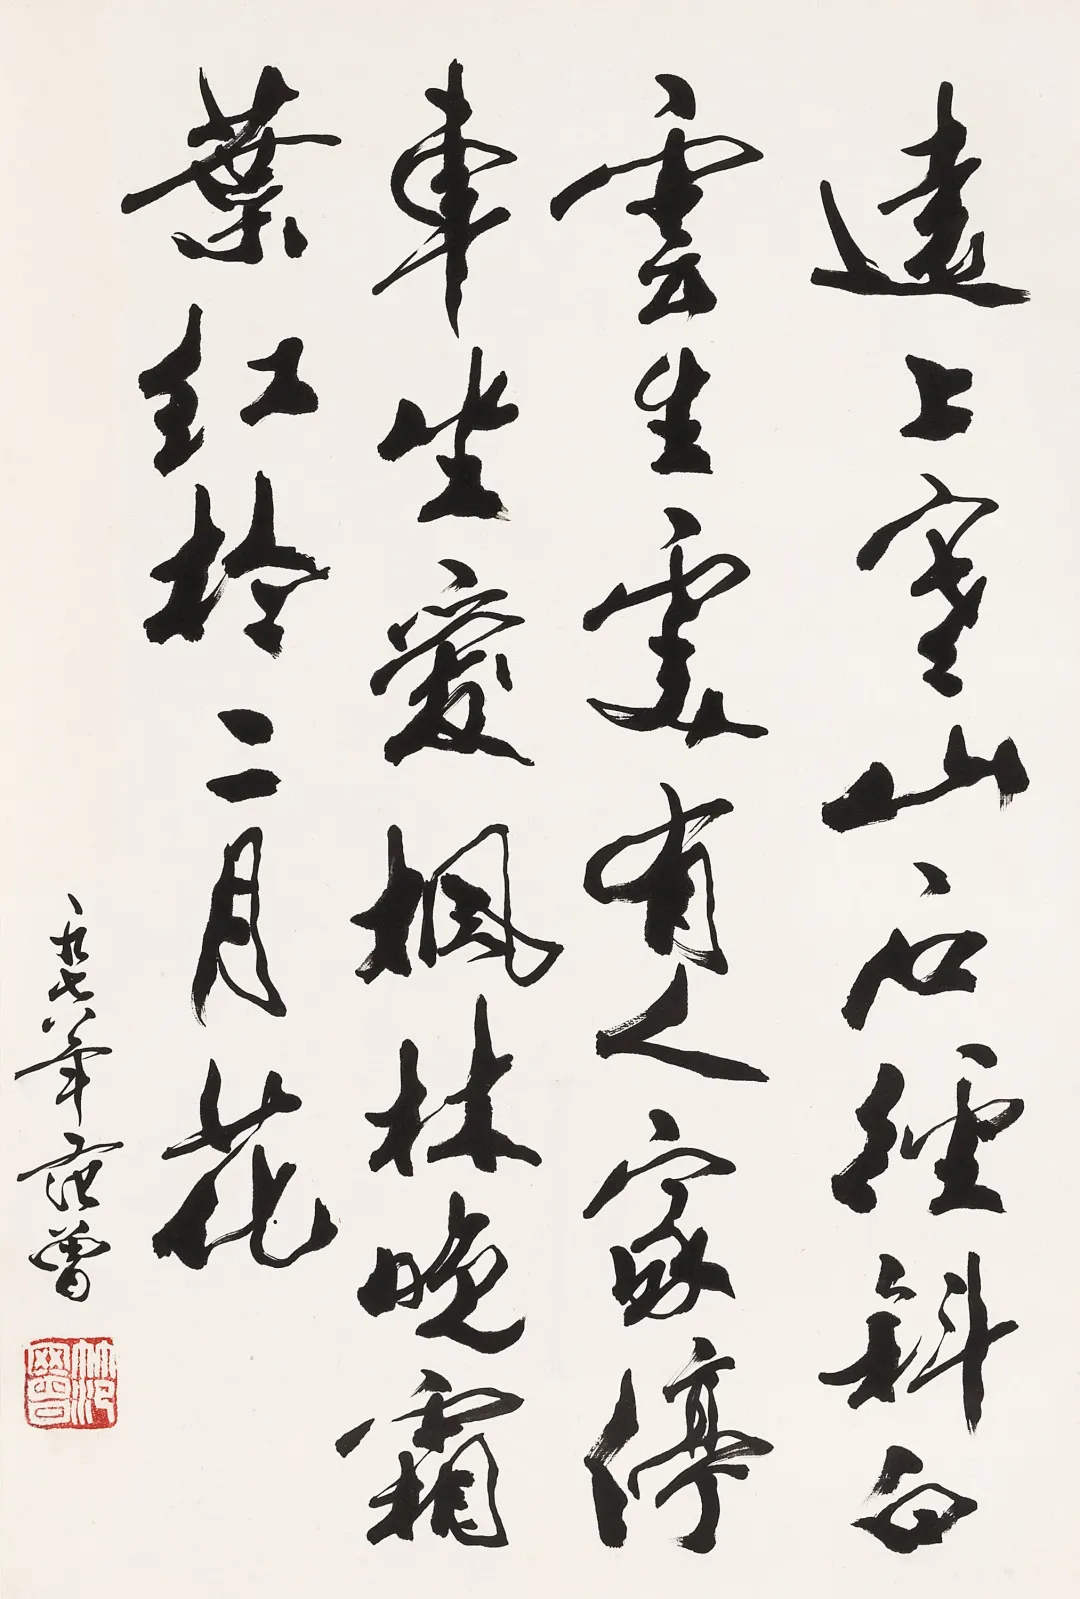 遠上寒山石徑斜白
雲生處有人家停
車坐愛楓林晚霜
葉紅於二月花
一九七八年范曾
范曾